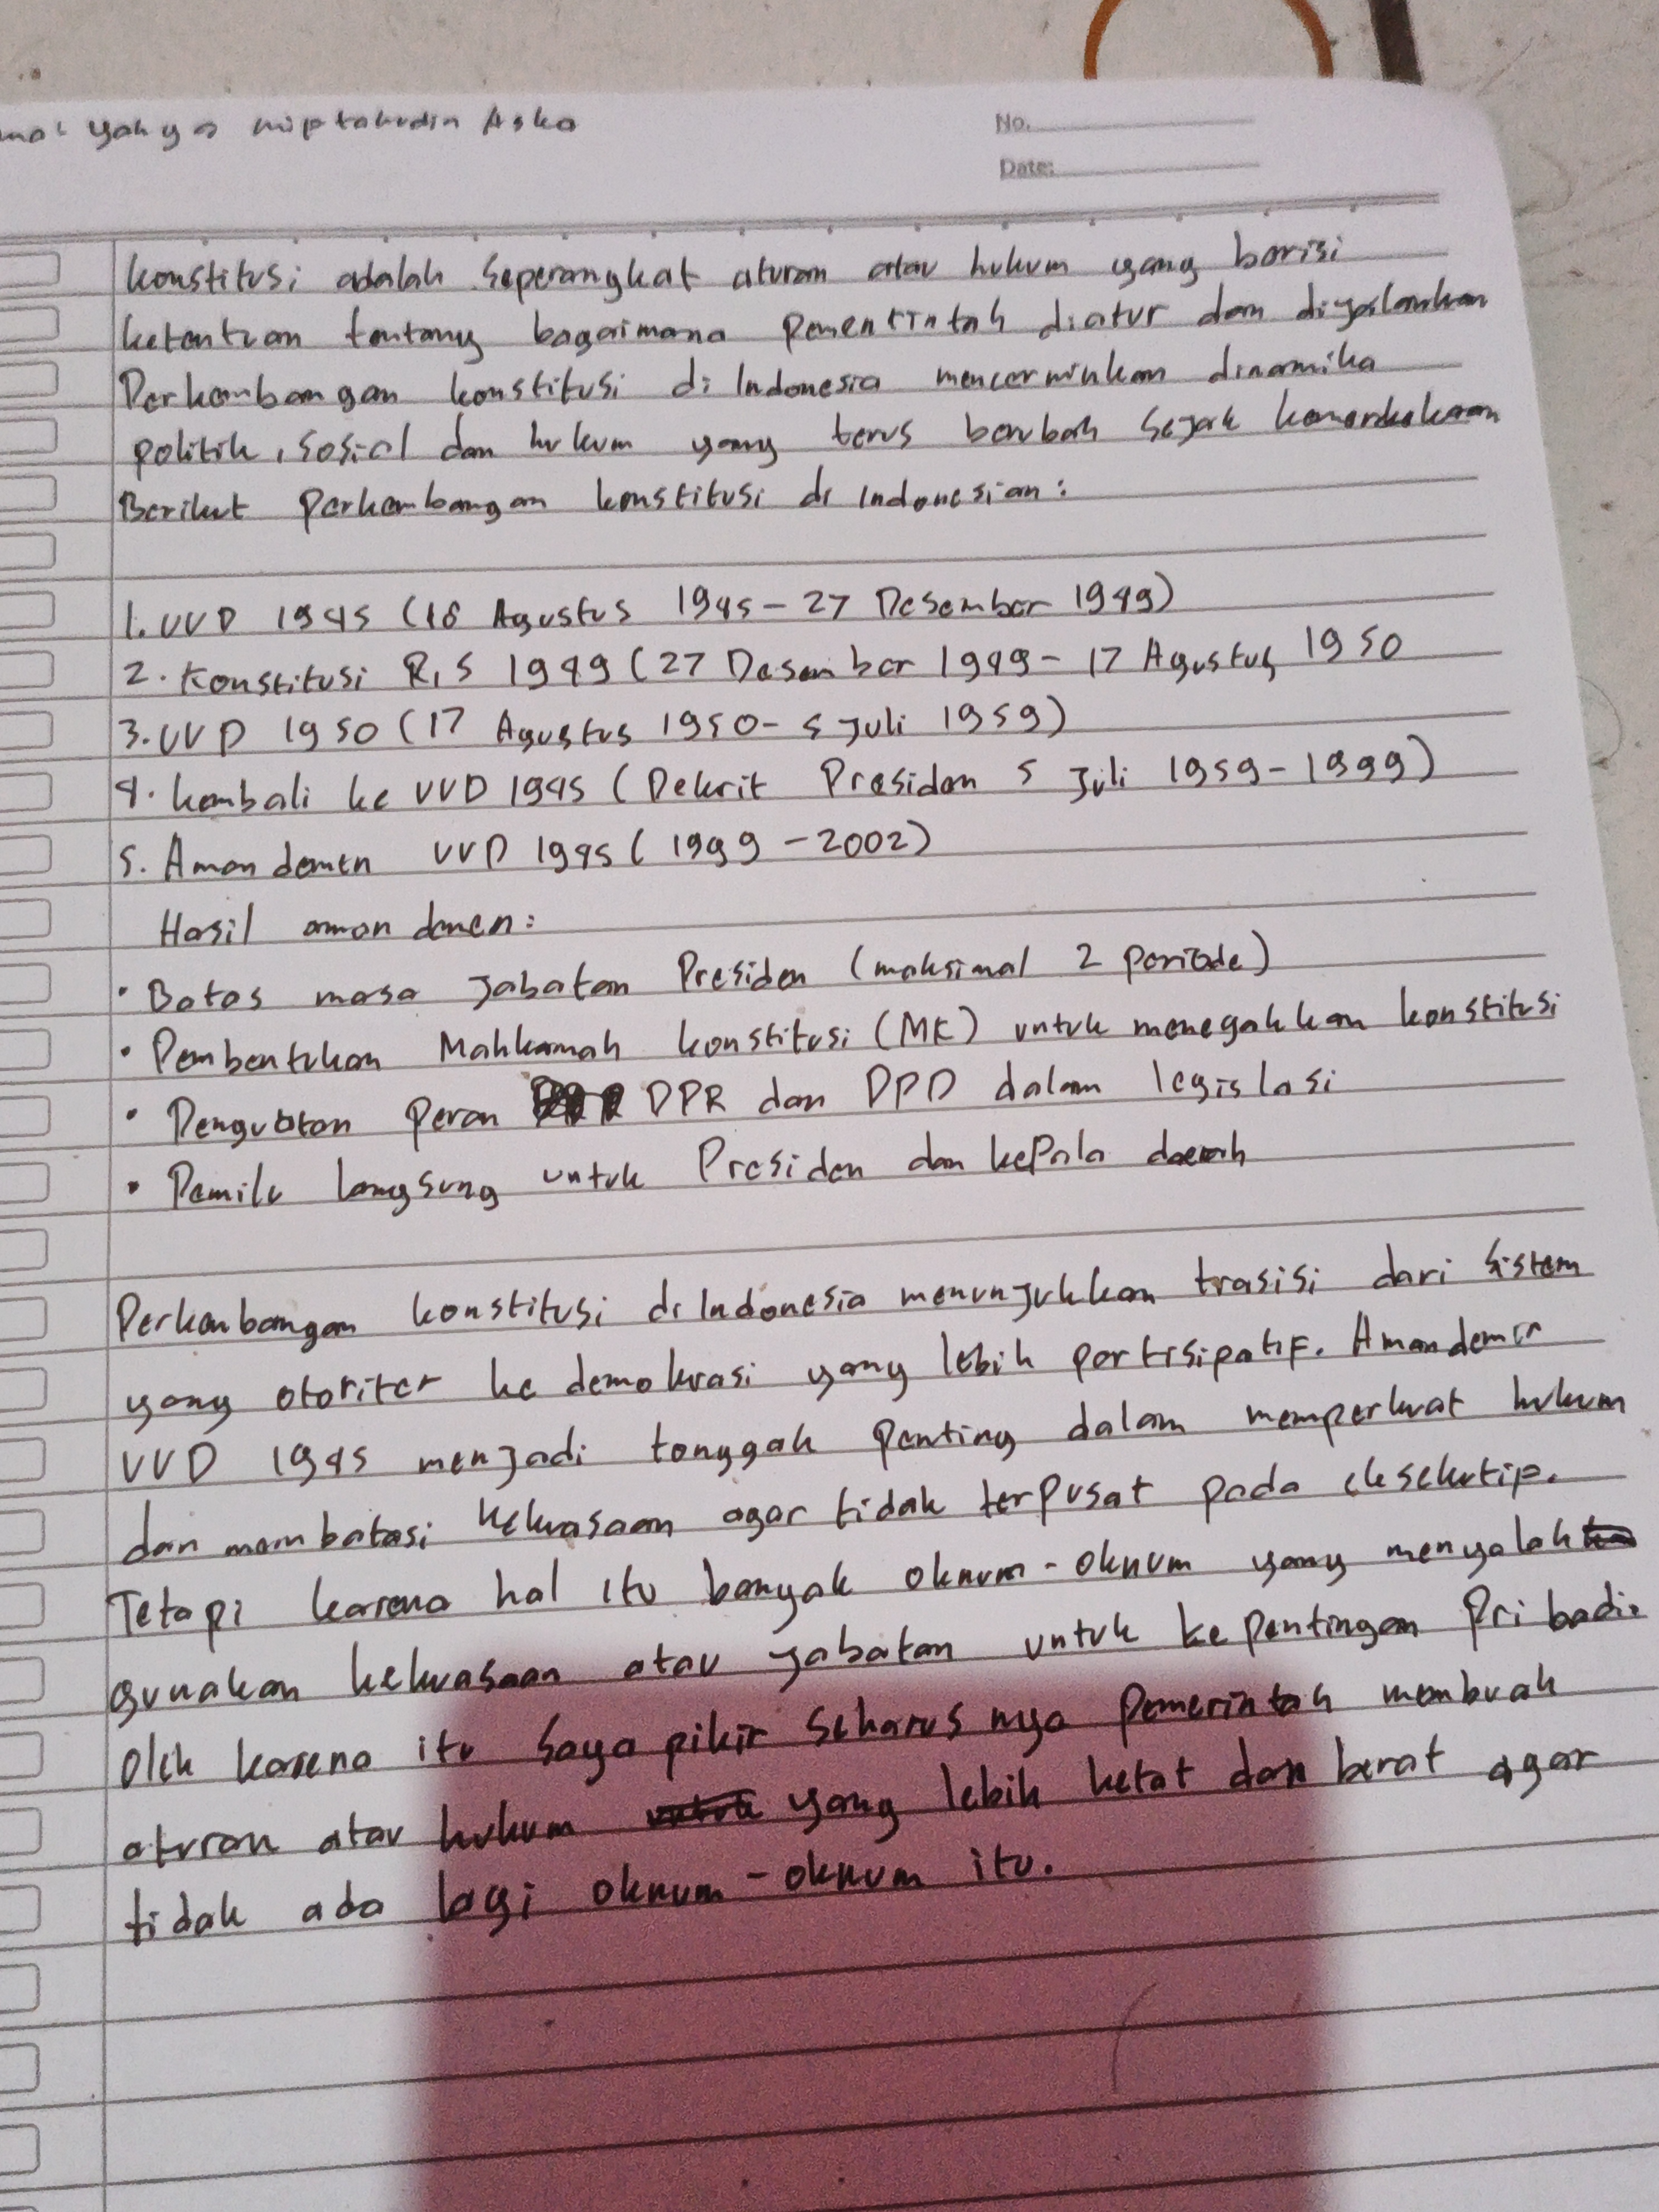 yahya miptahudin Aska
No.
Date:
konstitusi adalah seperangkat aturan atau hukum yang berisi
ketentuan tentang bagaimana pemerintah diatur dan dijalankan
Perkembangan konstitusi di Indonesia mencerminkan dinamika
politik, sosial dan hukum yang terus berubah sejak kemerdekaan
Berikut perkembangan konstitusi di Indonesian:
1. UUD 1945 (18 Agustus 1945 - 27 Desember 1949)
2. Konstitusi RIS 1949 (27 Desember 1949 - 17 Agustus 1950
3. UUD 1950 (17 Agustus 1950 - 5 Juli 1959)
4. kembali ke UUD 1945 (Dekrit Presiden 5 Juli 1959 - 1999)
5. Amandemen UUD 1945 (1999 - 2002)
Hasil amandemen:
• Batas masa Jabatan Presiden (maksimal 2 periode)
• Pembentukan Mahkamah konstitusi (MK) untuk menegakkan konstitusi
• Penguatan peran DPR dan DPD dalam legislasi
• Pemilu langsung untuk Presiden dan kepala daerah
Perkembangan konstitusi di Indonesia menunjukkan trasisi dari sistem
yang otoriter ke demokrasi yang lebih partisipatif. Amandemen
UUD 1945 menjadi tonggak penting dalam memperkuat hukum
dan membatasi kekuasaan agar tidak terpusat pada eksekutip.
Tetapi karena hal itu banyak oknum-oknum yang menyalah
gunakan kekuasaan atau jabatan untuk kepentingan pribadi.
Oleh karena itu saya pikir seharusnya pemerintah membuah
aturan atau hukum yang lebih ketat dan berat agar
tidak ada lagi oknum-oknum itu.